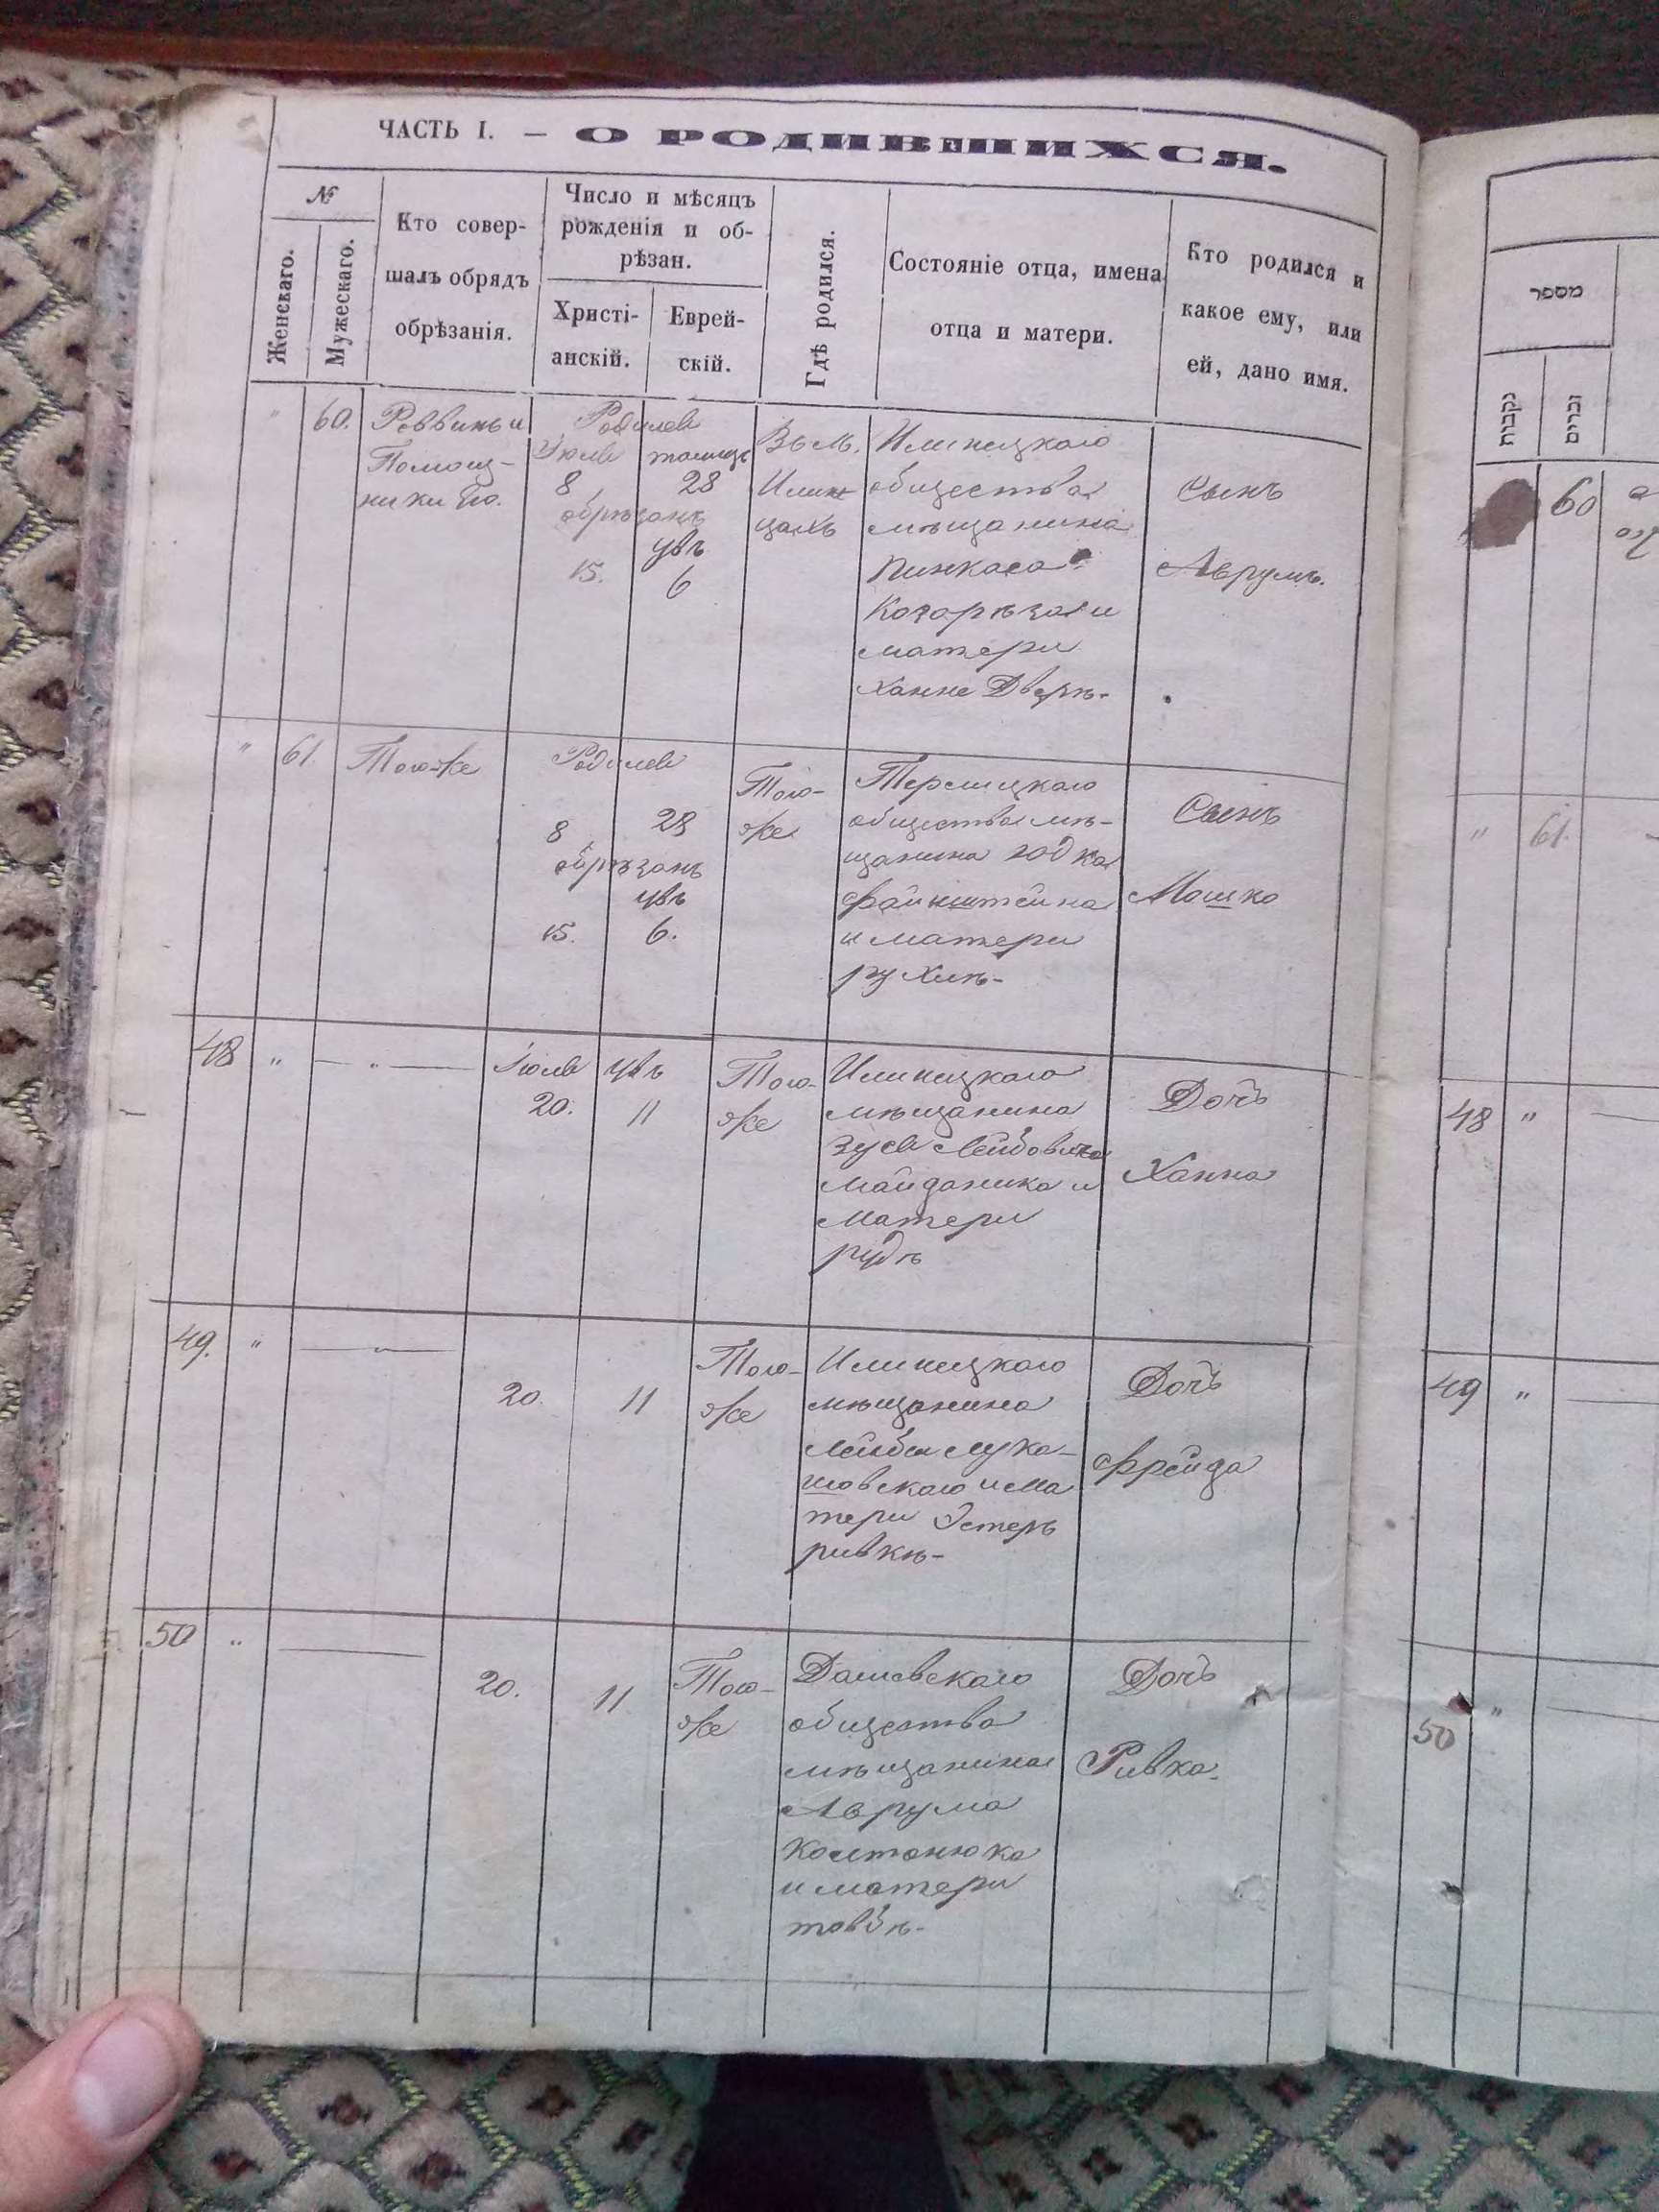 ЧАСТЬ I. — О РОДИВШИХСЯ.
№
Женскаго.
Мужескаго.
Кто совер-
шалъ обрядъ
обрѣзанія.
Число и мѣсяцъ
рожденія и об-
рѣзан.
Христі-
анскій.
Еврей-
скій.
Гдѣ родился.
Состояніе отца, имена
отца и матери.
Кто родился и
какое ему, или
ей, дано имя.
" 60.
Раввинъ и
Помощ-
ники Его.
Родился
Июля
8 28
обрѣзанъ
15. 6
Въ м.
Илин-
цахъ
Илинецкаго
общества
мѣщанина
Пинкаса
Козорѣза и
матери
Ханне Двере-
Сынъ
Аврумъ.
" 61.
Того-же
Родился
8 28
обрѣзанъ
15. 6.
Того-
же
общества мѣ-
щанина
Файнштейна
и матери
рухлѣ-
Сынъ
Мошко
48 " — " —
Июля
20. 11
Того-
же
Илинецкаго
мѣщанина
Зуся Лейбовича
Майданика и
матери
Дочь
Ханна
49. " — " —
20. 11
Того-
же
Илинецкаго
мѣщанина
Лейбы Лука-
шовскаго и ма
тери Эстеръ
ривкѣ-
Дочь
Фрейда
50 " —
20. 11
Того-
же
Дашевскаго
общества
мѣщанина
Аврума
Колтонюка
и матери
товбѣ-
Дочь
Ривка.
מספר
נקבות
זכרים
60
" 61.
48 "
49 "
50 "